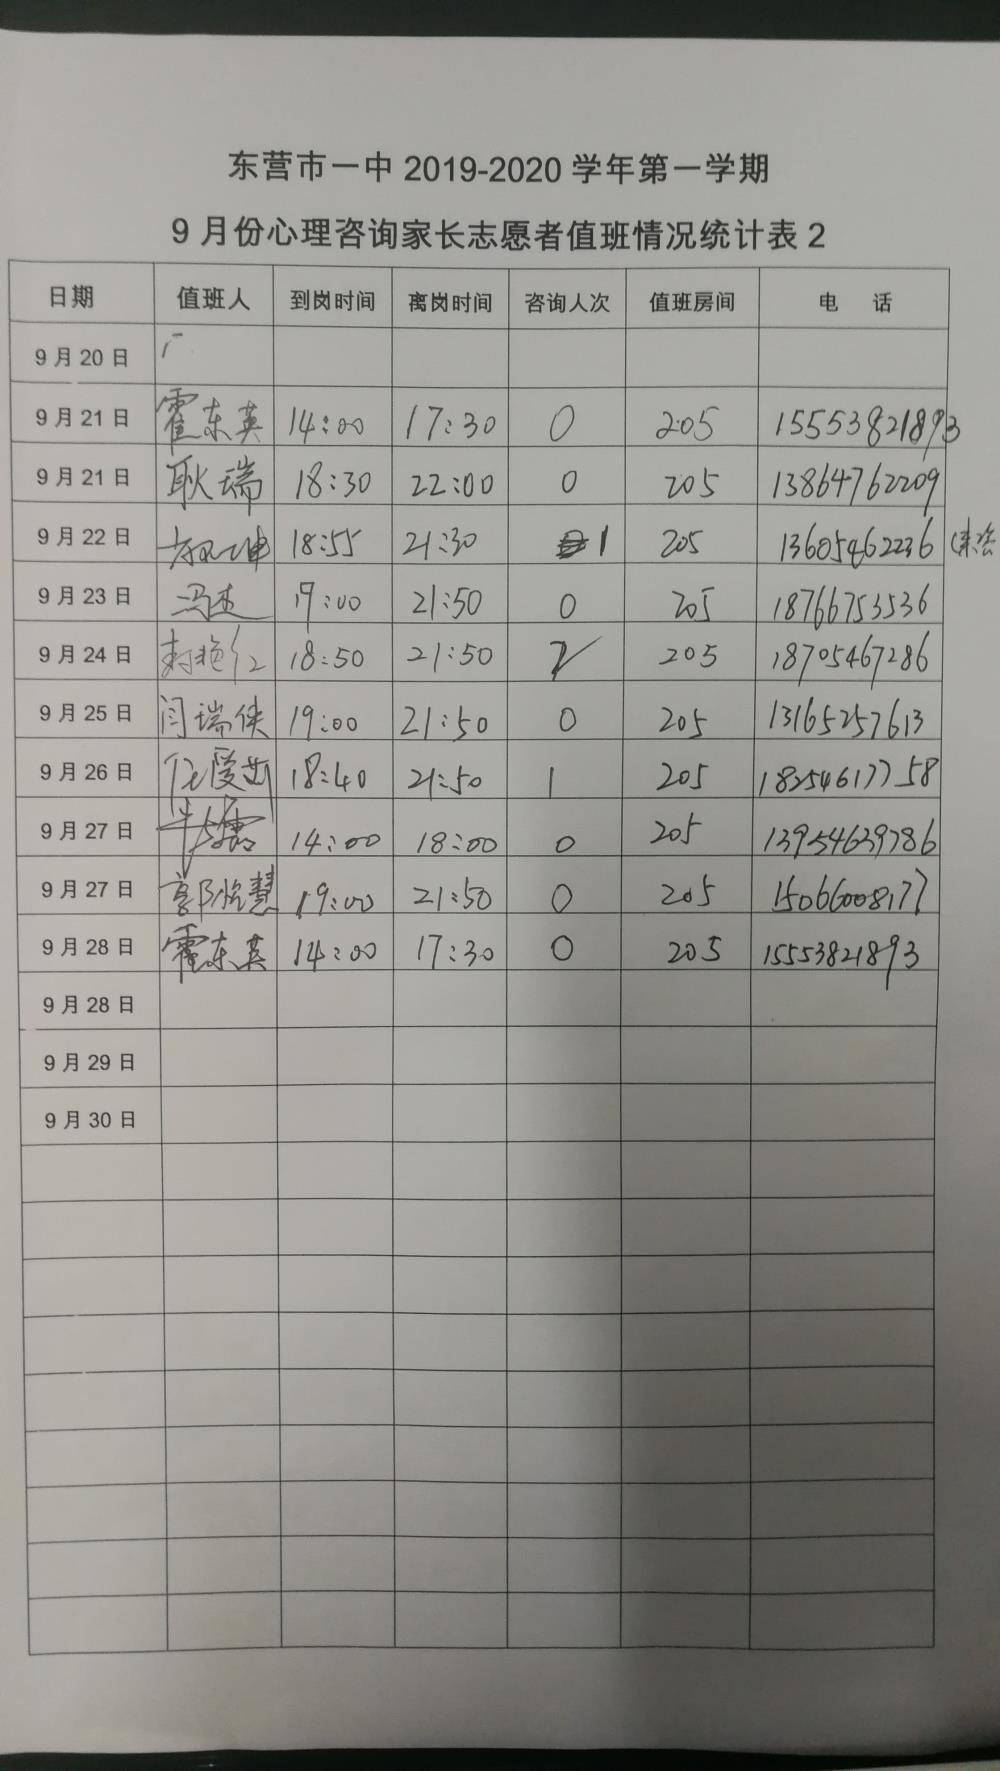 东营市一中 2019-2020 学年第一学期
9 月份心理咨询家长志愿者值班情况统计表 2
日期 值班人 到岗时间 离岗时间 咨询人次 值班房间 电 话
9 月 20 日
9 月 21 日 霍东英 14:00 17:30 0 205 15553821893
9 月 21 日 耿瑞 18:30 22:00 0 205 13864762209
9 月 22 日 18:55 21:30 1 205 13605462236
9 月 23 日 冯杰 19:00 21:50 0 205 18766753536
9 月 24 日 封艳仁 18:50 21:50 2 205 18705467286
9 月 25 日 闫瑞侠 19:00 21:50 0 205 13165257613
9 月 26 日 任爱茹 18:40 21:50 1 205 18254617758
9 月 27 日 14:00 18:00 0 205 13954639786
9 月 27 日 郭悦慧 19:00 21:50 0 205 15066008177
9 月 28 日 霍东英 14:00 17:30 0 205 15553821893
9 月 28 日
9 月 29 日
9 月 30 日